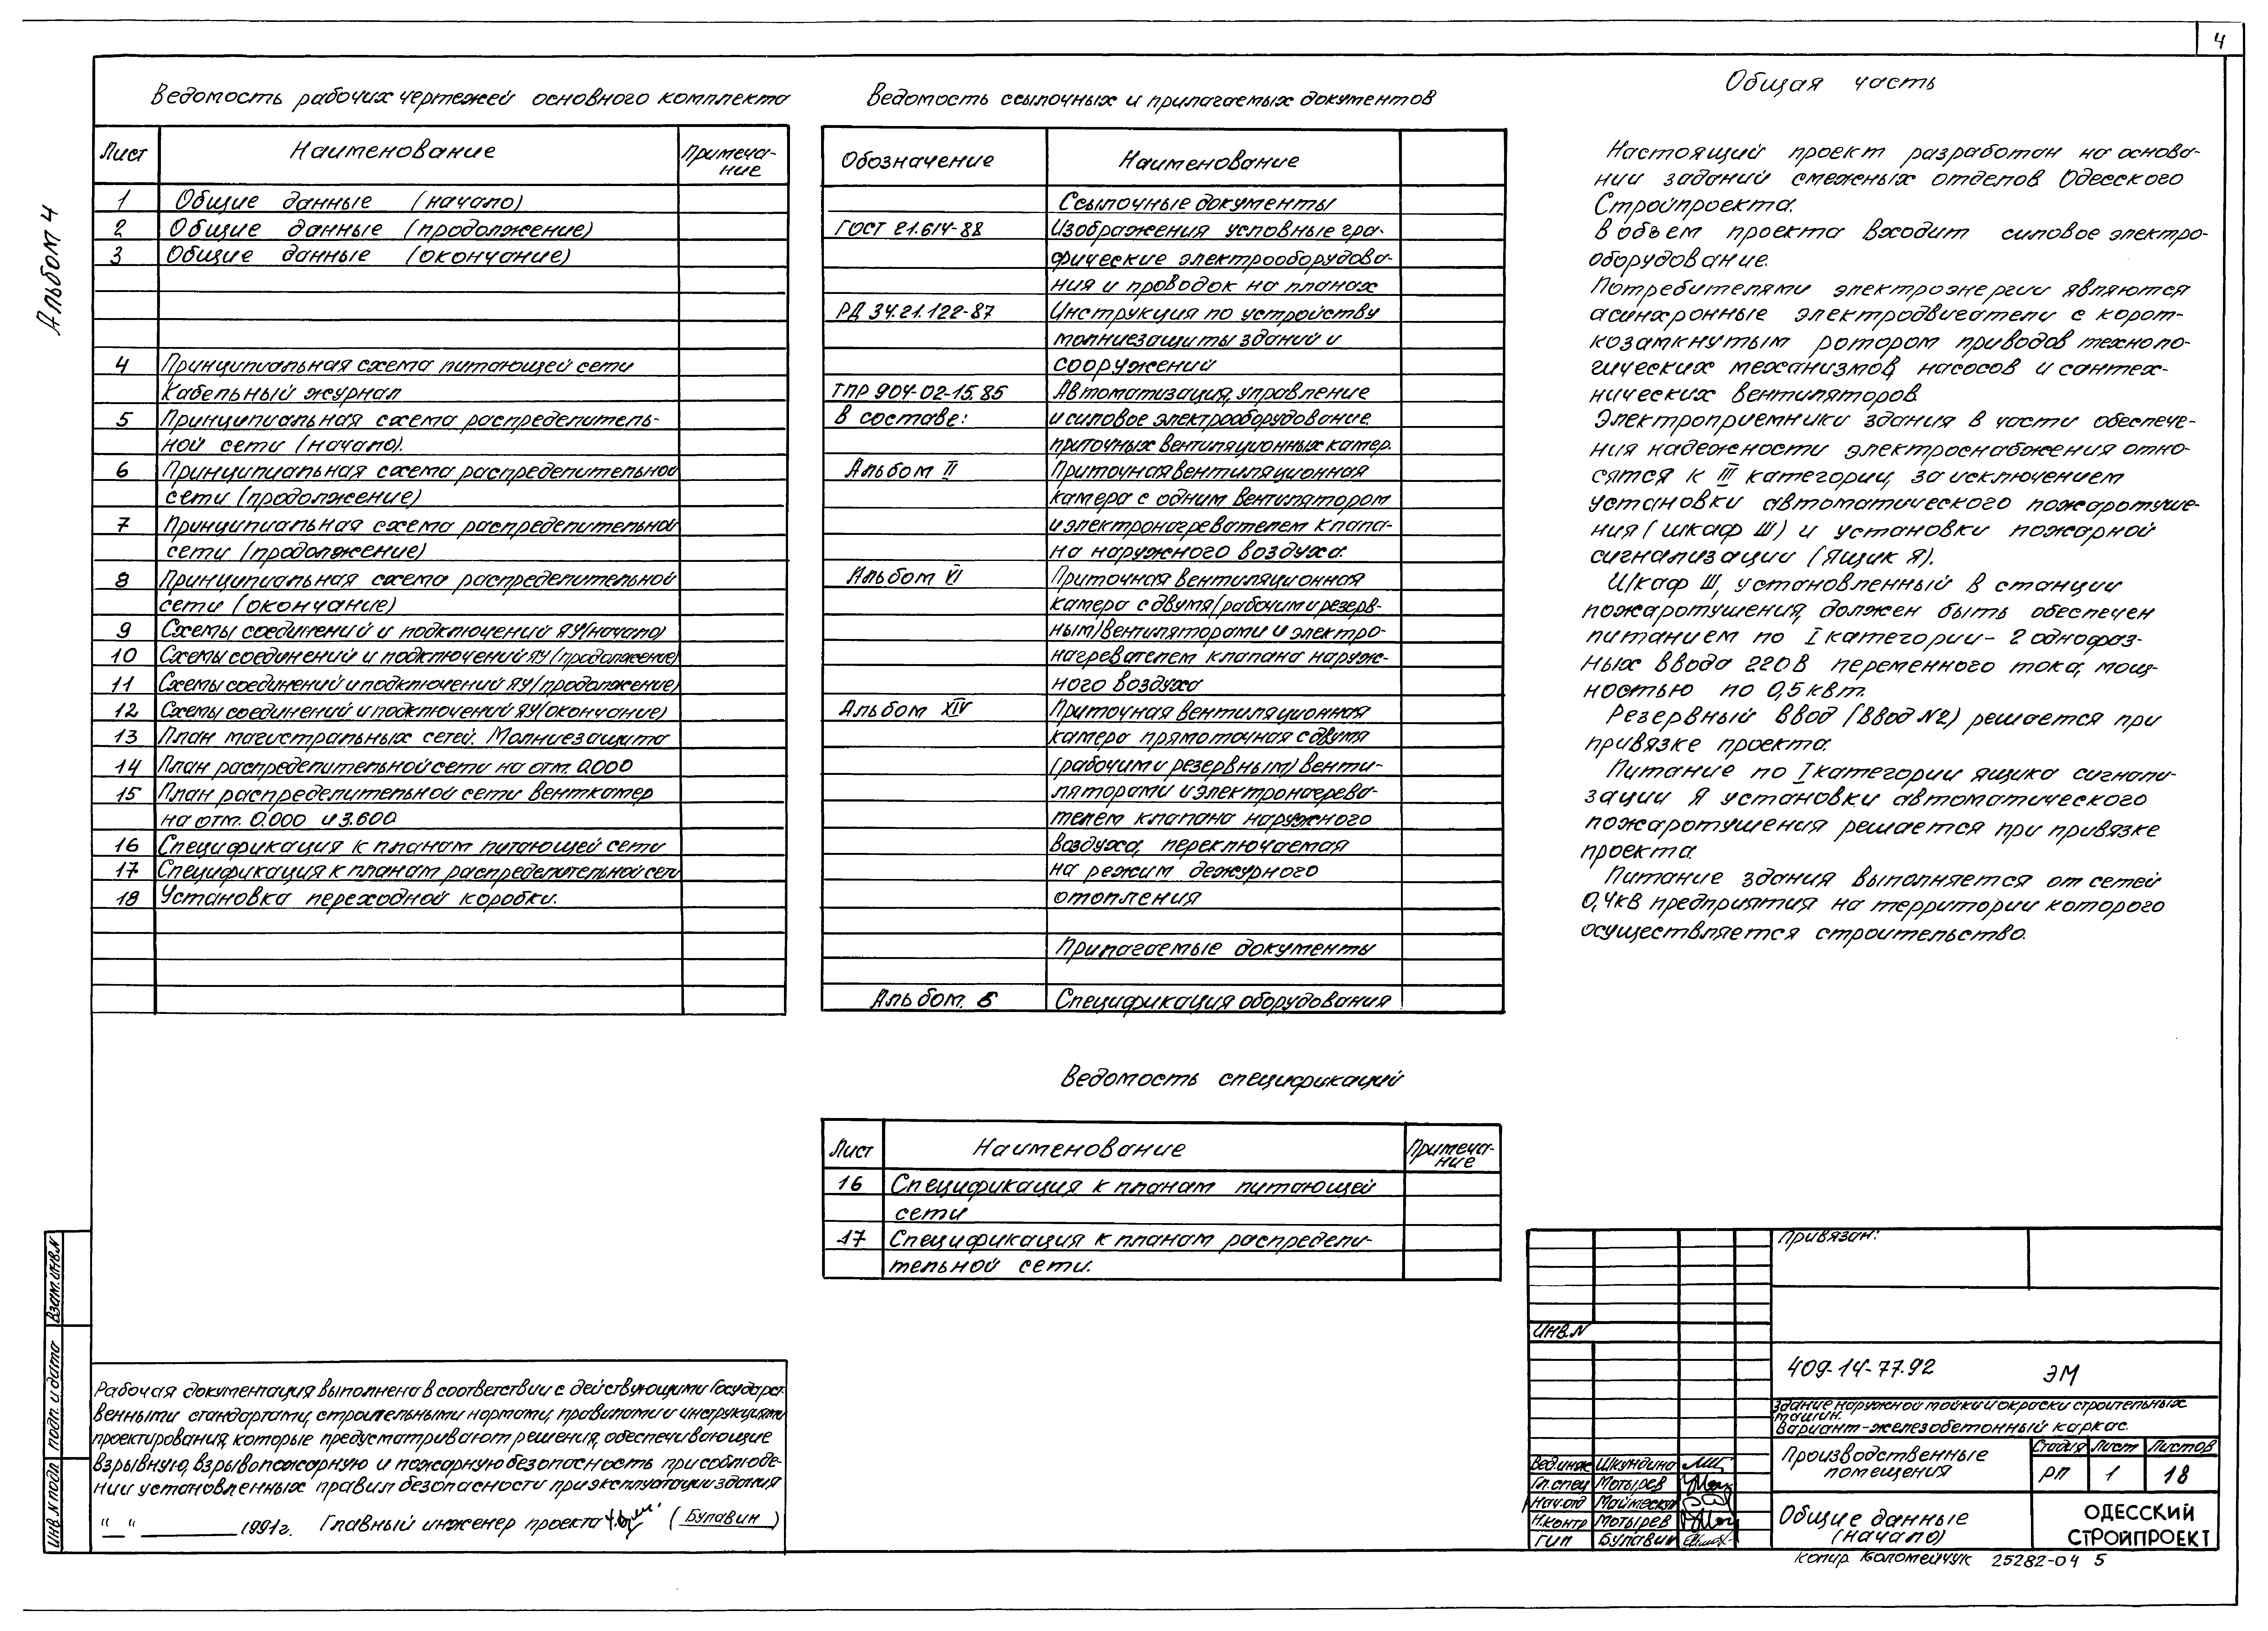 4
Альбом 4
Ведомость рабочих чертежей основного комплекта
Лист Наименование Примеча-
ние
1 Общие данные (начало)
2 Общие данные (продолжение)
3 Общие данные (окончание)
4 Принципиальная схема питающей сети
Кабельный журнал
5 Принципиальная схема распределитель-
ной сети (начало).
6 Принципиальная схема распределительной
сети (продолжение)
7 Принципиальная схема распределительной
сети (продолжение)
8 Принципиальная схема распределительной
сети (окончание)
9 Схемы соединений и подключений ЯУ(начало)
10 Схемы соединений и подключений ЯУ(продолжение)
11 Схемы соединений и подключений ЯУ(продолжение)
12 Схемы соединений и подключений ЯУ(окончание)
13 План магистральных сетей. Молниезащита
14 План распределительной сети на отм. 0.000
15 План распределительной сети венткамер
на отм. 0.000 и 3.600
16 Спецификация к планам питающей сети
17 Спецификация к планам распределительной сети
18 Установка переходной коробки.
Ведомость ссылочных и прилагаемых документов
Обозначение Наименование
Ссылочные документы
ГОСТ 21.614-88 Изображения условные гра-
фические электрооборудова-
ния и проводок на планах
РД 34.21.122-87 Инструкция по устройству
молниезащиты зданий и
сооружений
ТПР 904-02-15.85 Автоматизация, управление
В составе: и силовое электрооборудование
приточных вентиляционных камер.
Альбом II Приточная вентиляционная
камера с одним вентилятором
и электронагревателем клапа-
на наружного воздуха.
Альбом VI Приточная вентиляционная
камера с двумя(рабочим и резерв-
ным)вентиляторами и электро-
нагревателем клапана наруж-
ного воздуха
Альбом XIV Приточная вентиляционная
камера прямоточная с двумя
(рабочим и резервным) венти-
ляторами и электронагрева-
телем клапана наружного
воздуха, переключаемая
на режим дежурного
отопления
Прилагаемые документы
Альбом. 6 Спецификация оборудования
Ведомость спецификаций
Лист Наименование Примеча-
ние
16 Спецификация к планам питающей
сети
17 Спецификация к планам распредели-
тельной сети.
Общая часть
Настоящий проект разработан на основа-
нии заданий смежных отделов Одесского
Стройпроекта.
В объем проекта входит силовое электро-
оборудование.
Потребителями электроэнергии являются
асинхронные электродвигатели с корот-
козамкнутым ротором приводов техноло-
гических механизмов, насосов и сантех-
нических вентиляторов.
Электроприемники здания в части обеспече-
ния надежности электроснабжения отно-
сятся к III категории, за исключением
установки автоматического пожаротуше-
ния (шкаф Ш) и установки пожарной
сигнализации (ящик Я).
Шкаф Ш, установленный в станции
пожаротушения, должен быть обеспечен
питанием по I категории - 2 однофаз-
ных ввода 220В переменного тока, мощ-
ностью по 0,5 квт.
Резервный ввод (ввод №2) решается при
привязке проекта.
Питание по I категории ящика сигнали-
зации Я установки автоматического
пожаротушения решается при привязке
проекта.
Питание здания выполняется от сетей
0,4кв предприятия на территории которого
осуществляется строительство.
Рабочая документация выполнена в соответствии с действующими Государст-
венными стандартами, строительными нормами, правилами и инструкциями
проектирования, которые предусматривают решения, обеспечивающие
взрывную, взрывопожарную и пожарную безопасность при соблюде-
нии установленных правил безопасности при эксплуатации здания
" " 1991г. Главный инженер проекта (Булавин)
Взам.инв.N
подп. и дата
инв. N подл
Привязан:
инв.N
409-14-77.92 ЭМ
Здание наружной мойки и окраски строительных
машин.
Вариант-железобетонный каркас.
Производственные
помещения
Стадия Лист Листов
РП 1 18
Общие данные
(начало)
ОДЕССКИЙ
СТРОЙПРОЕКТ
Вед.инж Шкундина
Гл.спец Мотырев
Нач.отд
Н.контр Мотырев
ГИП Булавин
копир Коломейчук 25282-04 5